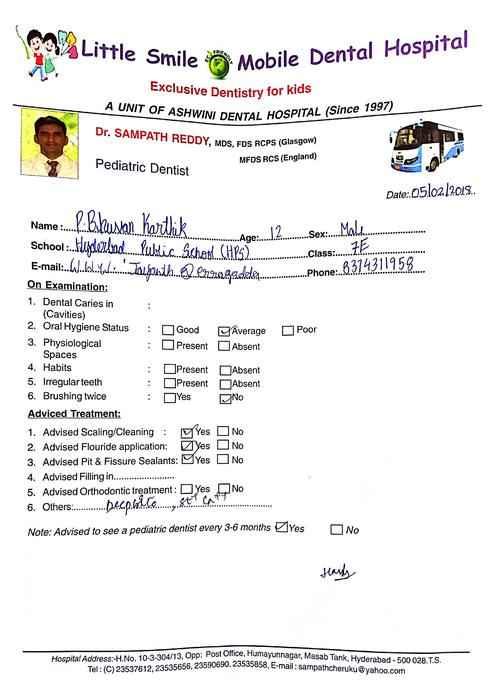 Little Smile Mobile Dental Hospital
Exclusive Dentistry for kids
A UNIT OF ASHWINI DENTAL HOSPITAL (Since 1997)
Dr. SAMPATH REDDY, MDS, FDS RCPS (Glasgow)
MFDS RCS (England)
Pediatric Dentist
Date: 05/02/2018.
Name: P. Bhuvan Karthik Age: 12 Sex: Male
School: Hyderabad Public School (HPS) Class: 7E
E-mail: W.W.W. Phone: 8374311958
On Examination:
1. Dental Caries in :
(Cavities)
2. Oral Hygiene Status : Good Average Poor
3. Physiological : Present Absent
Spaces
4. Habits : Present Absent
5. Irregular teeth : Present Absent
6. Brushing twice : Yes No
Adviced Treatment:
1. Advised Scaling/Cleaning : Yes No
2. Advised Flouride application: Yes No
3. Advised Pit & Fissure Sealants: Yes No
4. Advised Filling in
5. Advised Orthodontic treatment : Yes No
6. Others:
Note: Advised to see a pediatric dentist every 3-6 months Yes No
Hospital Address:-H.No. 10-3-304/13, Opp: Post Office, Humayunnagar, Masab Tank, Hyderabad - 500 028.T.S.
Tel : (C) 23537612, 23535656, 23590690. 23535858, E-mail : sampathcheruku@yahoo.com